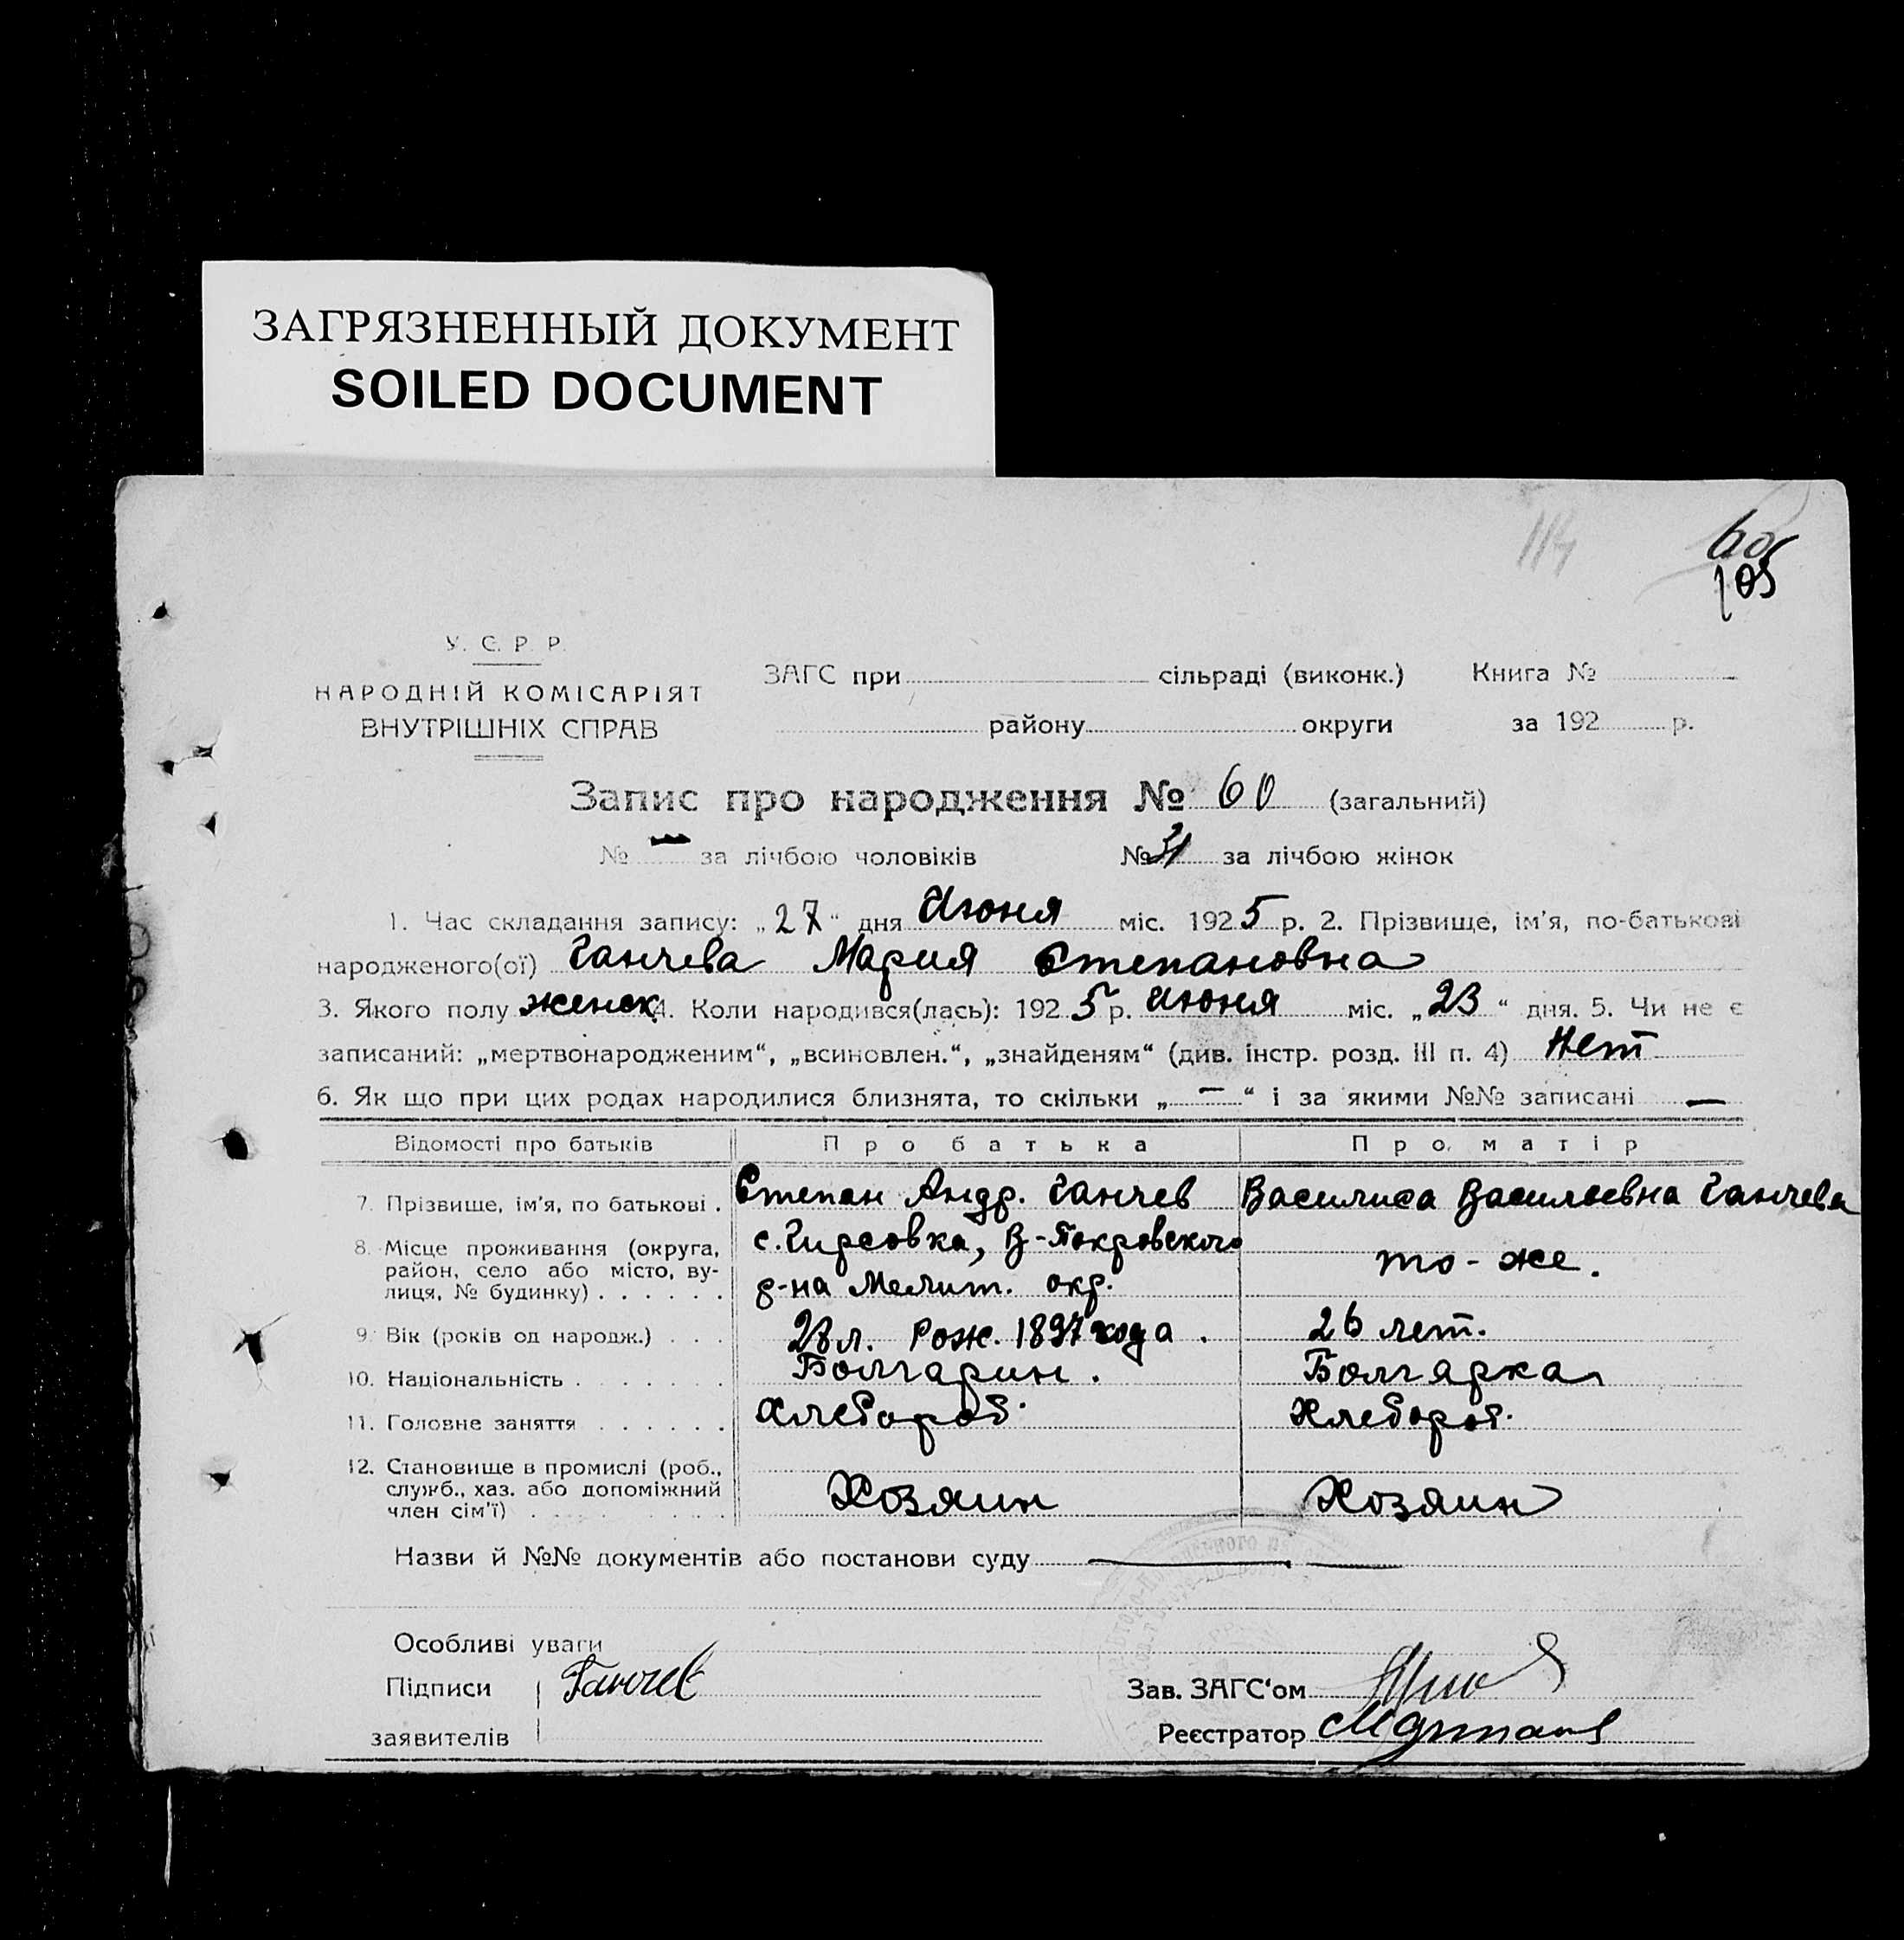 ЗАГРЯЗНЕННЫЙ ДОКУМЕНТ
SOILED DOCUMENT
114
60
105
У. С. Р. Р.
НАРОДНІЙ КОМІСАРІЯТ
ВНУТРІШНІХ СПРАВ
ЗАГС при сільраді (виконк.) Книга №
району округи за 192 р.
Запис про народження № 60 (загальний)
№ — за лічбою чоловіків № 31 за лічбою жінок
1. Час складання запису: „27“ дня Июня міс. 1925 р. 2. Прізвище, ім'я, по-батькові
народженого(ої) Ганчева Мария Степановна
3. Якого полу женск. 4. Коли народився(лась): 1925 р. Июня міс. „23“ дня. 5. Чи не є
записаний: „мертвонародженим“, „всиновлен.“, „знайденям“ (див. інстр. розд. III п. 4) Нет
6. Як що при цих родах народилися близнята, то скільки „—“ і за якими №№ записані —
Відомості про батьків Про батька Про матір
7. Прізвище, ім'я, по батькові . Степан Андр. Ганчев Василиса Васильевна Ганчева
8. Місце проживання (округа, район, село або місто, вулиця, № будинку) . . . . . . с. Гирсовка, В-Покровского
р-на Мелит. окр. то-же.
9. Вік (років од народж.) . . . 28 л. Рож. 1897 года. 26 лет.
10. Національність . . . . . . . Болгарин. Болгарка
11. Головне заняття . . . . . . Хлебороб. Хлебороб.
12. Становище в промислі (роб.,
служб., хаз. або допоміжний
член сім'ї) . . . . . . . . . Хозяин Хозяин
Назви й №№ документів або постанови суду —
Особливі уваги
Підписи Ганчев Зав. ЗАГС'ом
заявителів Реєстратор